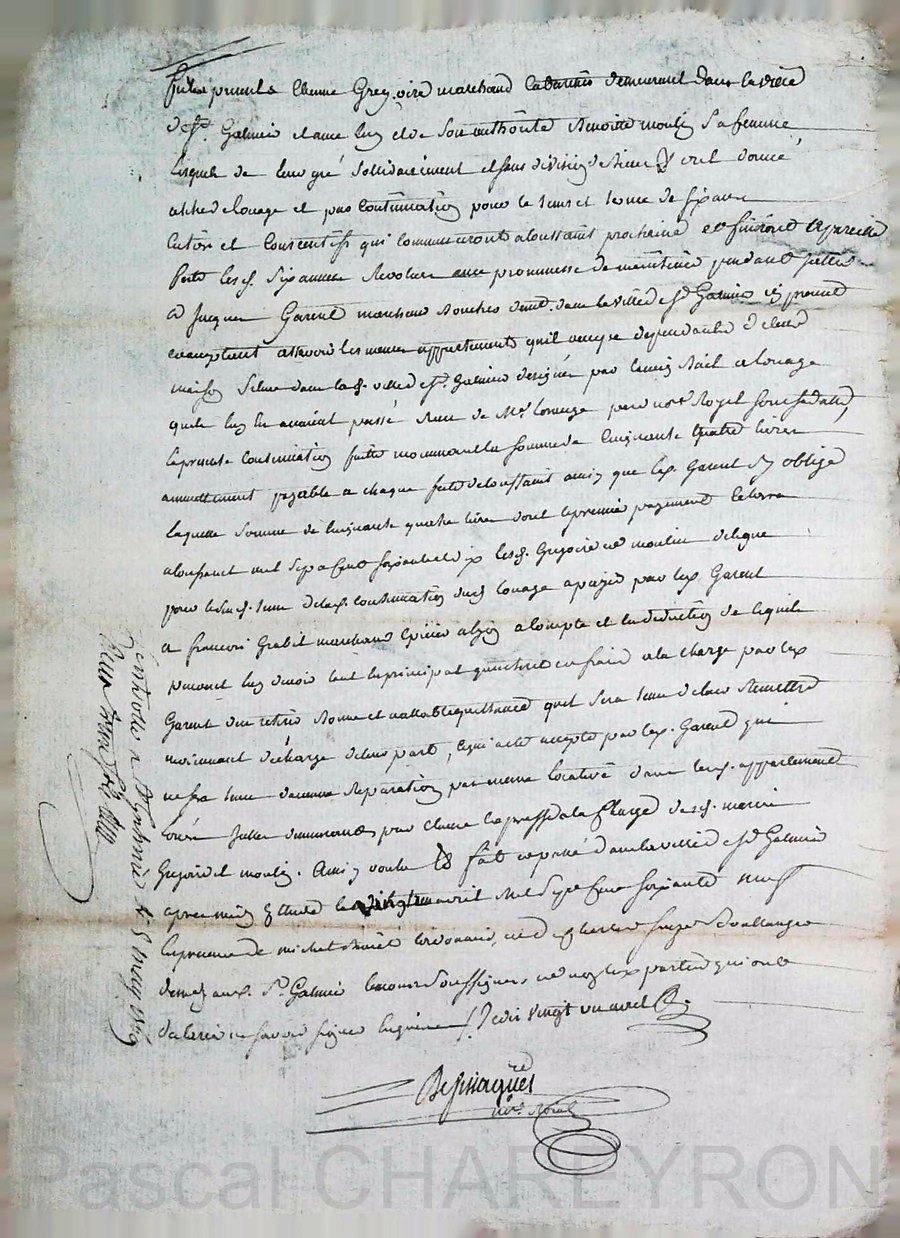 furent presents Etienne Gregoire marchand Cabaretier demeurant dans la ville
de St. Galmier et avec luy et de son authorité Benoitte moulin sa femme
lesquels de leur gré solidairement et sans division de biens ont donné
a titre de louage et par Continuation pour le tems et terme de six années
Entiers et Consecutifs qui commenceront a toussaint prochaine et finiront a pareille
fete lesd. six années Revolues avec prommesse de maintenir pendant icelles
a Jacques Garent marchand Boucher demt. dans la ville de St Galmier icy present
et acceptant assavoir les memes appartements qu'il occupe dependants de leur
maison scituée dans lad. ville de St. Galmier designés par l'ancien Bail a louage
qu'ils luy en avoient passé Reçu de Me. notre Royal sous sa datte,
la presente continuation faitte moyennant la somme de Cinquante quatre livres
annuellement payable a chaque fete de toussaint ainsy que led. Garent s'y oblige
laquelle somme de Cinquante quatre livres dont le premier payement echerra
a toussaint mil sept cent soixante et dix lesd. Gregoire et moulin delegue
pour led. tems de lad. continuation dud. louage a payer par led. Garent
a françois Grabit marchand Epicier a lyon a compte et en deduction de ce qu'ils
peuvent luy devoir tant en principal qu'interet et frais a la charge par led.
Garent d'en retirer Bonne et vallable quittance qu'il sera tenu de leur Remettre
moienant decharge de leur part, ce qui a eté accepté par led. Garent qui
ne sera tenu d'aucune Reparation pas meme locative dans lesd. appartements
par clause expresse a la Charge desd. mariés
Gregoire et moulin. Ainsy voulu fait et passé dans la ville de St Galmier
apres midy le vingt un avril Mil Sept Cent soixante neuf
En presence de michel Cordonnier, et de Boullanger
demt. aud. St. Galmier temoins soussignés, et non lesd. parties qui ont
declaré ne savoir signer Enquis / Je dis vingt un avril
Besjacques
notre Royal
Controllé a St Galmier le 5 may 1769
Reçu treize sols